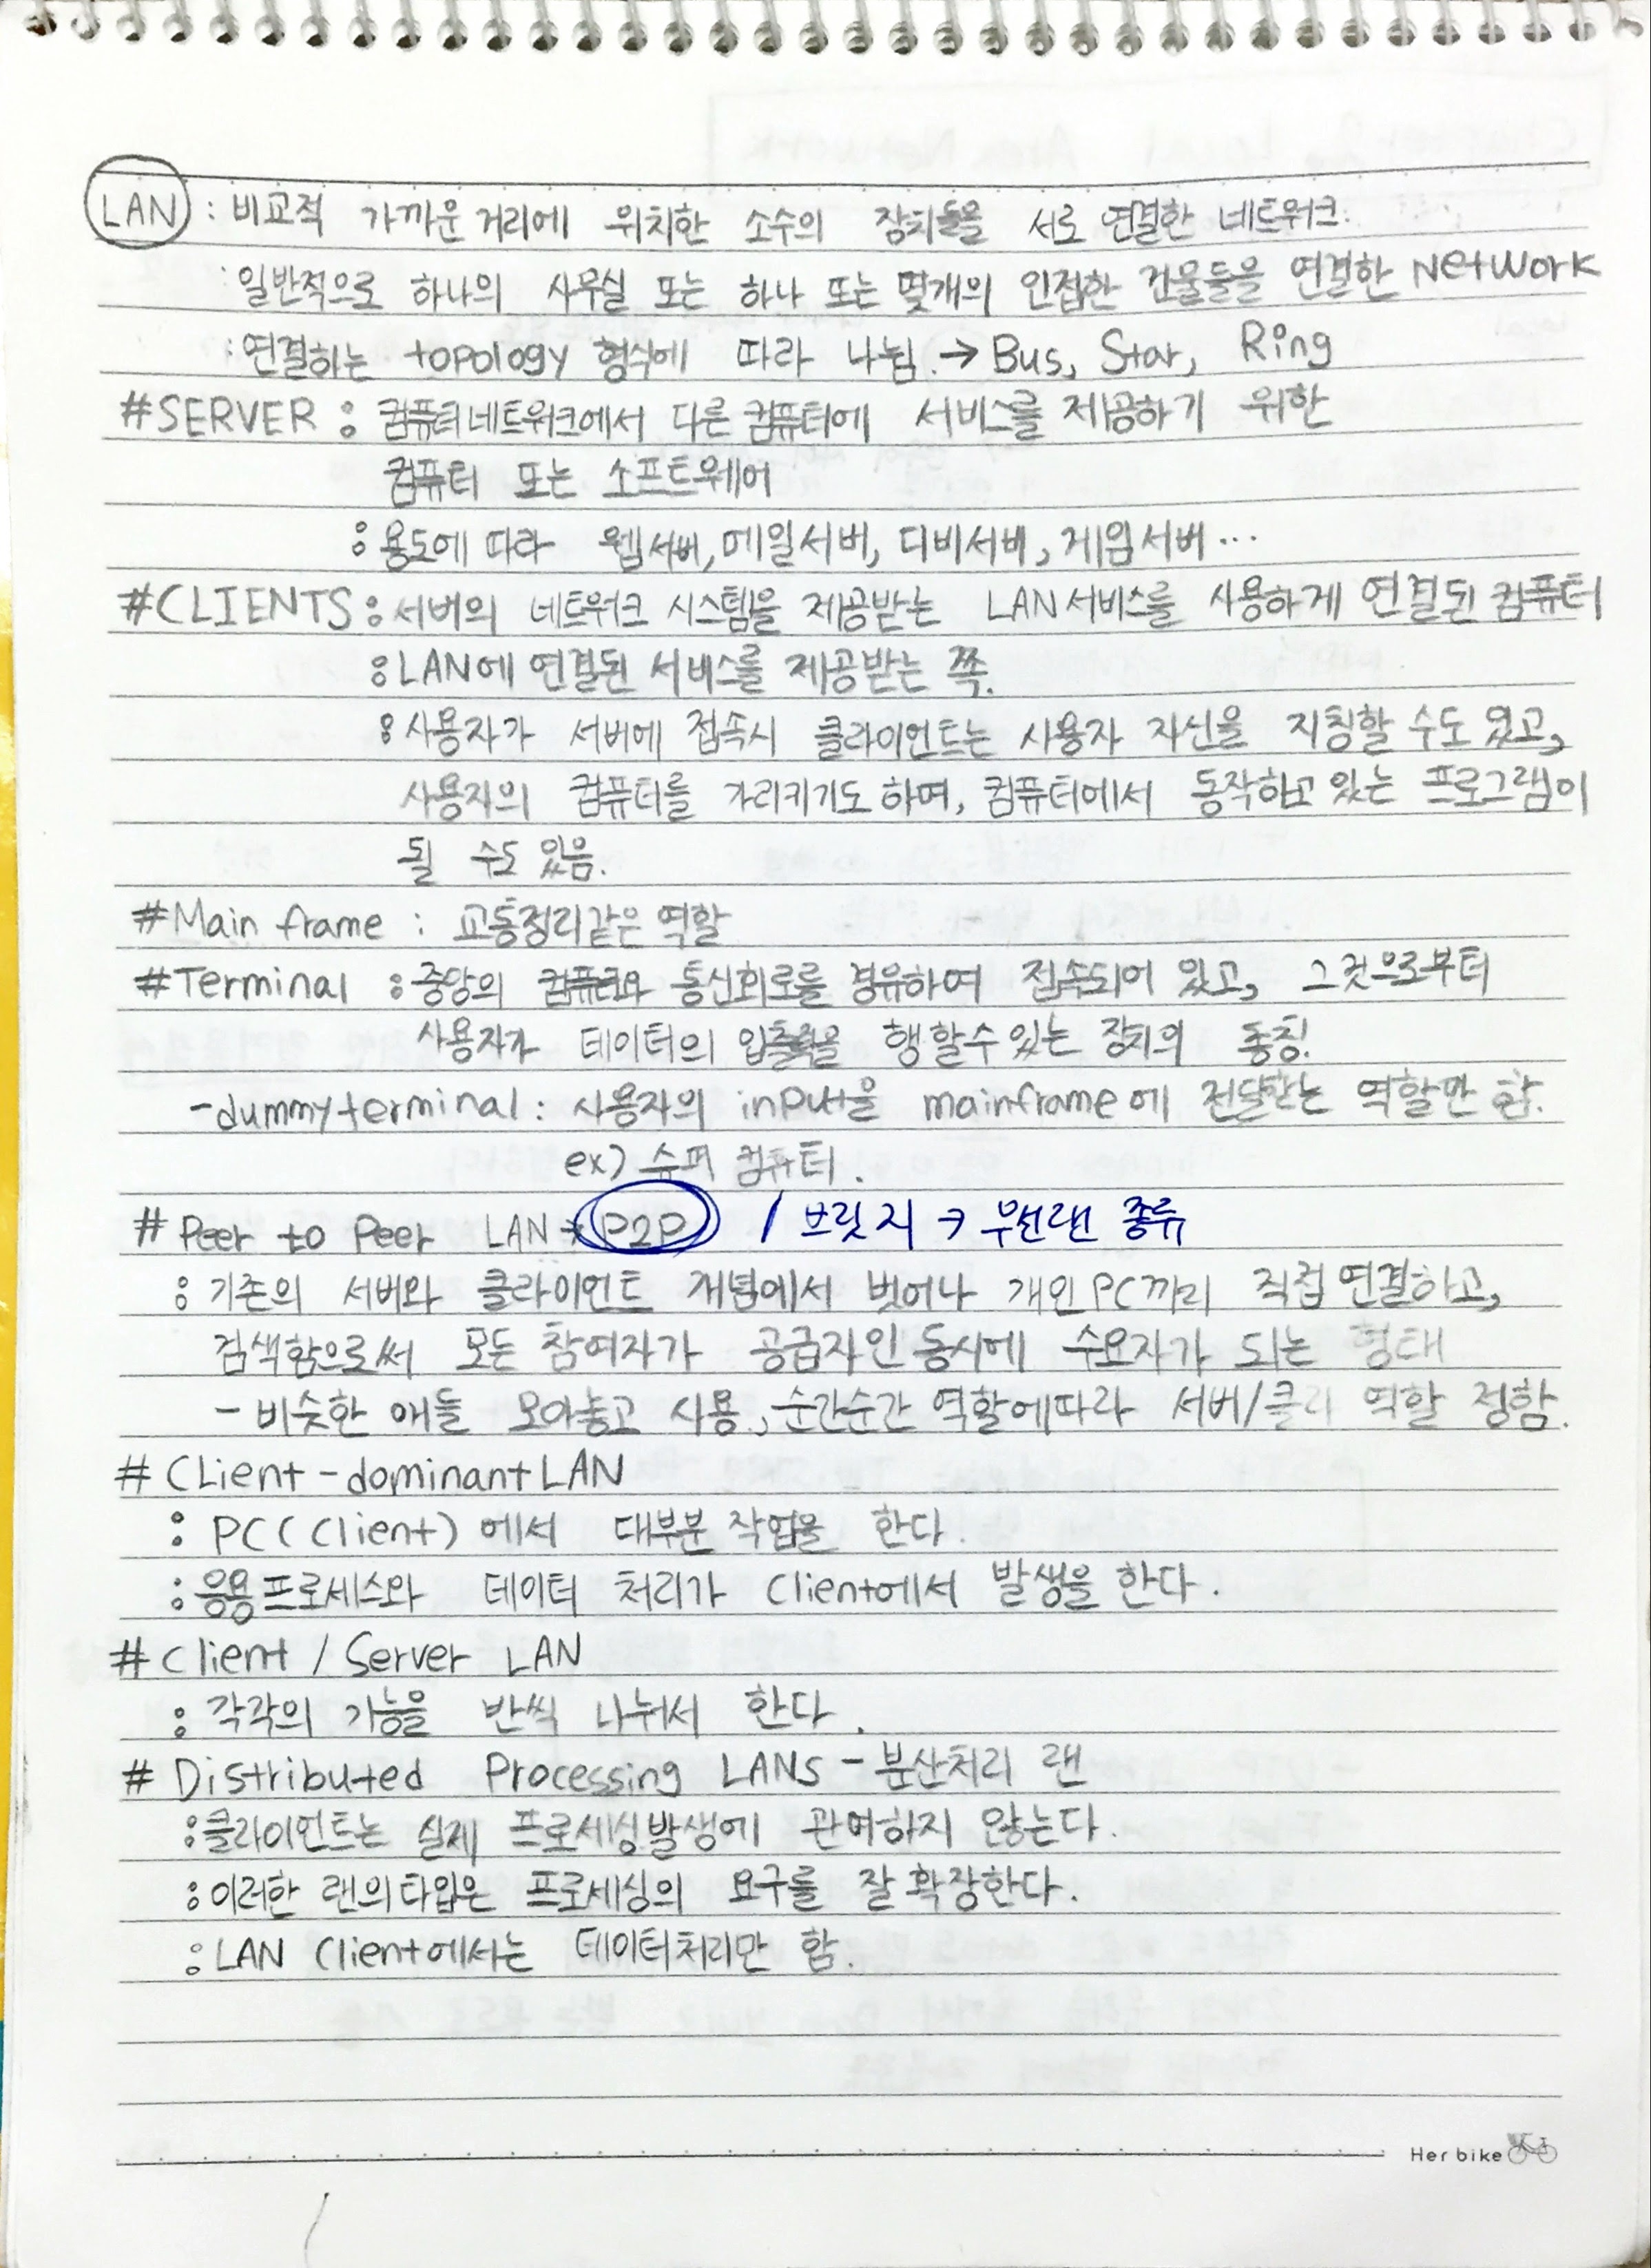 LAN : 비교적 가까운 거리에 위치한 소수의 장치들을 서로 연결한 네트워크.
: 일반적으로 하나의 사무실 또는 하나 또는 몇개의 인접한 건물들을 연결한 Network
: 연결하는 topology 형식에 따라 나뉨. → Bus, Star, Ring
#SERVER : 컴퓨터네트워크에서 다른 컴퓨터에 서비스를 제공하기 위한
컴퓨터 또는 소프트웨어
: 용도에 따라 웹서버, 메일서버, 디비서버, 게임서버 ...
#CLIENTS : 서버의 네트워크 시스템을 제공받는 LAN서비스를 사용하게 연결된 컴퓨터
: LAN에 연결된 서비스를 제공받는 쪽.
: 사용자가 서버에 접속시 클라이언트는 사용자 자신을 지칭할 수도 있고,
사용자의 컴퓨터를 가리키기도 하며, 컴퓨터에서 동작하고 있는 프로그램이
될 수도 있음.
#Main frame : 교통정리같은 역할
#Terminal : 중앙의 컴퓨터와 통신회로를 경유하여 접속되어 있고, 그것으로부터
사용자가 데이터의 입출력을 행할수 있는 장치의 총칭.
-dummy terminal : 사용자의 input을 mainframe에 전달하는 역할만 함.
ex) 슈퍼 컴퓨터.
# Peer to Peer LAN → P2P / 브릿지 → 무선랜 종류
: 기존의 서버와 클라이언트 개념에서 벗어나 개인PC끼리 직접 연결하고,
검색함으로써 모든 참여자가 공급자인 동시에 수요자가 되는 형태
- 비슷한 애들 모아놓고 사용, 순간순간 역할에따라 서버/클라 역할 정함.
# Client - dominant LAN
: PC(Client) 에서 대부분 작업을 한다.
: 응용프로세스와 데이터 처리가 Client에서 발생을 한다.
# Client / Server LAN
: 각각의 기능을 반씩 나눠서 한다.
# Distributed Processing LANs - 분산처리 랜
: 클라이언트는 실제 프로세싱발생에 관여하지 않는다.
: 이러한 랜의타입은 프로세싱의 요구를 잘 확장한다.
: LAN Client에서는 데이터처리만 함.
Her bike